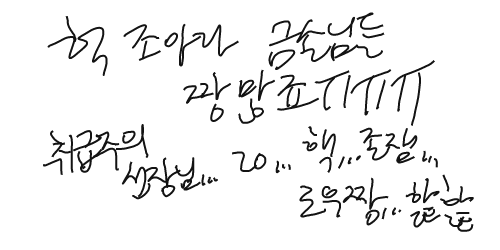 헉 조아라 금손님들
짱 많죠ㅠㅠㅠ
취급주의
선장님... 20... 핵... 존잼...
로우짱... 핥핥